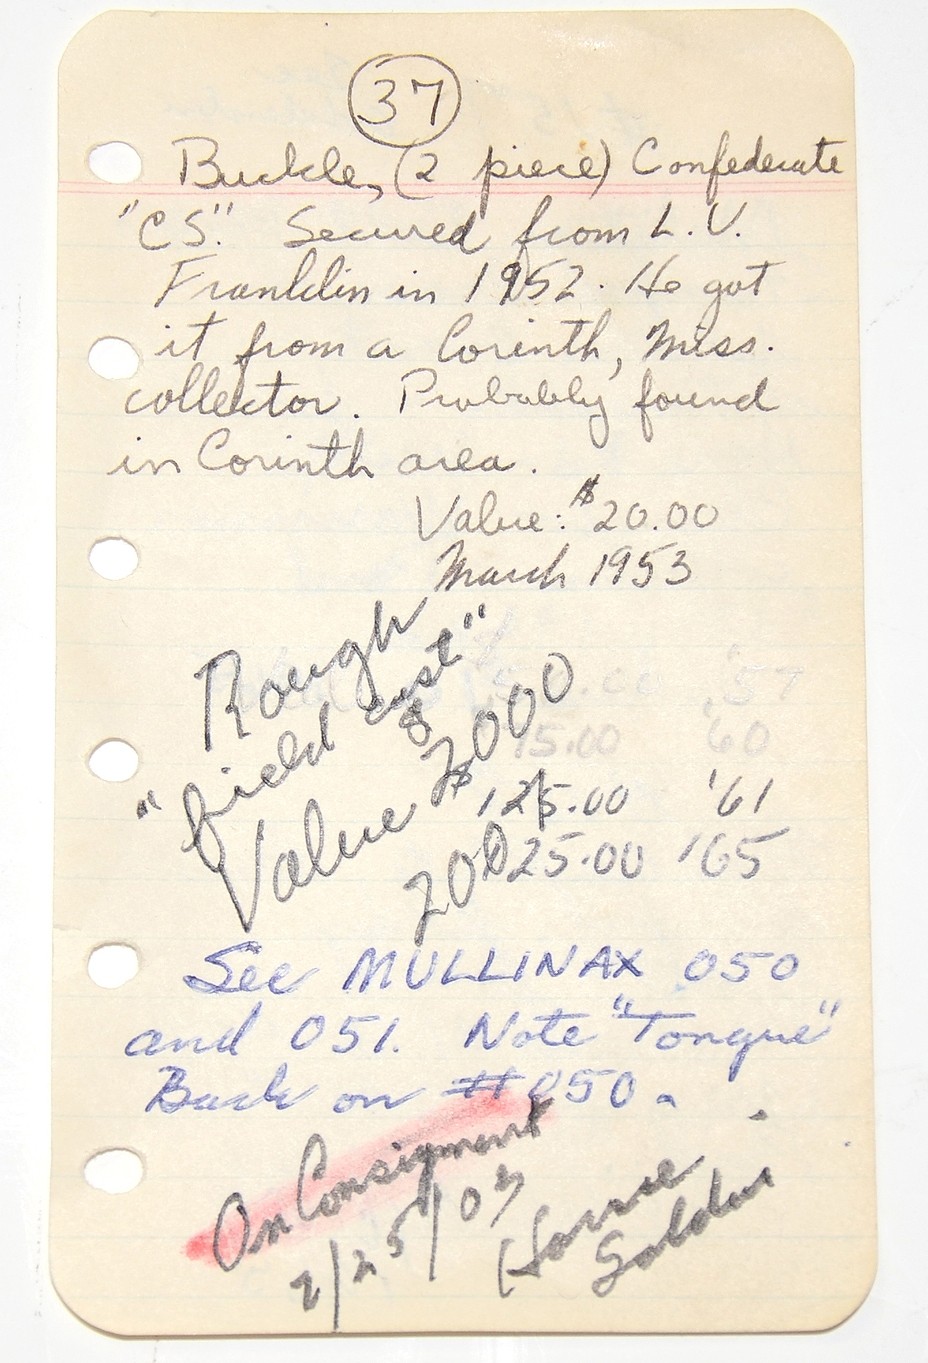 37
Buckle, (2 piece) Confederate
"CS". Secured from L.V.
Franklin in 1952. He got
it from a Corinth, Miss.
collector. Probably found
in Corinth area.
Value: $20.00
March 1953
Rough
"field cast"
Value $2000
.00 '57
75.00 '60
125.00 '61
200 25.00 '65
See MULLINAX 050
and 051. Note "Tongue"
Back on #050.
On Consigment
2/25/03
Horse
Soldier